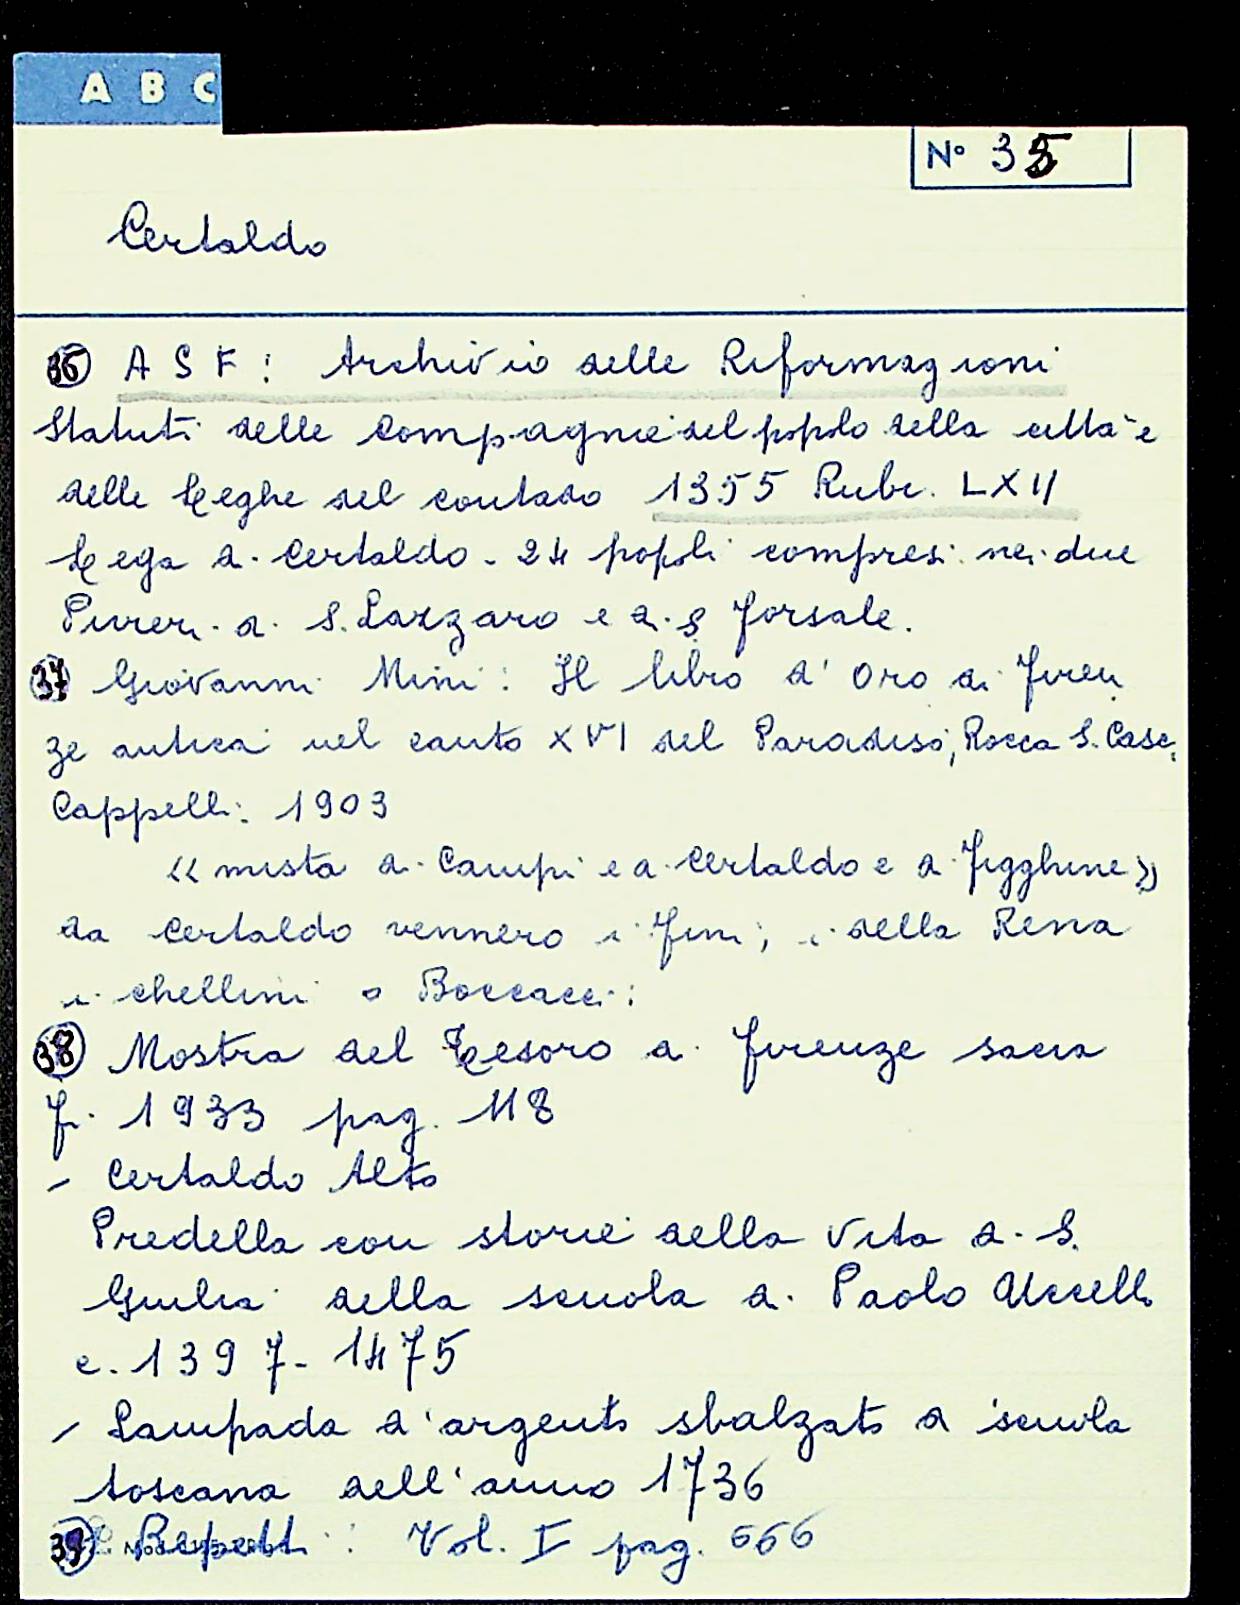 A B C
N° 35
Certaldo
36 A S F: Archivio delle Riformagioni
Statuti delle Compagnie del popolo della città e
delle Leghe del contado 1355 Rubr. LXII
Lega di Certaldo - 24 popoli compresi nei due
Pivieri di S. Lazzaro e di S
37 Giovanni Mini: Il libro d'Oro di Firen
ze antica nel canto XVI del Paradiso, Rocca S. Casc.
Cappelli: 1903
« mista di Campi e di Certaldo e di Figghine »
da Certaldo vennero i Fini; i della Rena
i Chellini o Boccacci:
38 Mostra del Tesoro di Firenze sacra
F. 1933 pag. 118
- Certaldo Alto
Predella con storie della vita di S.
Giulia della scuola di Paolo Uccello
c. 1397-1475
- Lampada d'argento sbalzato di scuola
toscana dell'anno 1736
39 Repetti: Vol. I pag. 666